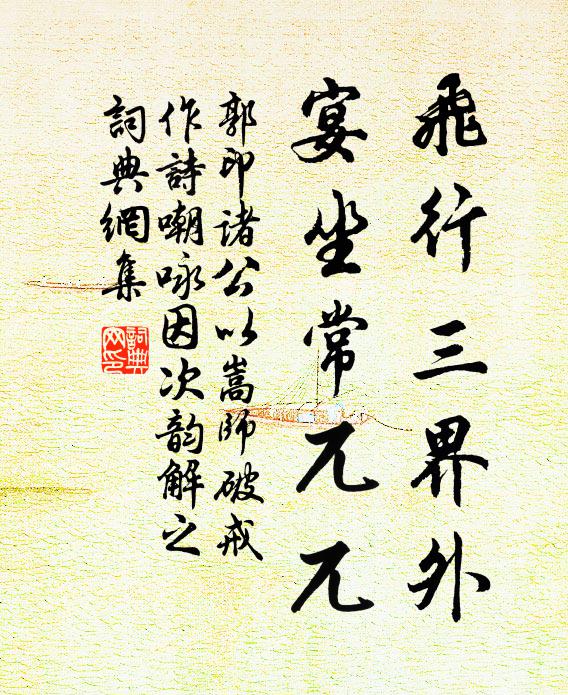 飛行三界外
宴坐常兀兀
郭印諸公以嵩師破戒
作詩嘲咏因次韵解之
詞典網集
詞典
网印